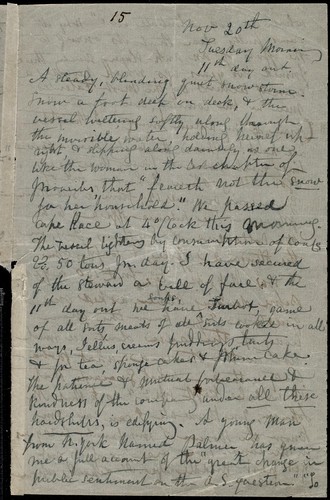 15
Nov 20th
Tuesday Morning
11th day out
A steady, blinding quiet snow storm.
Snow a foot deep on deck, & the
vessel wallowing softly along through
the invisible water, holding herself up-
right & slipping along daintily, as one
like the woman in the chapter of
Proverbs that "feareth not the snow
for her household." We passed
Cape Race at 4 o'clock this morning.
The vessel lightens by consumption of coals
50 tons per day. I have secured
of the Steward a bill of fare & the
11th day out we have soups, Turbot, game
of all sorts meats of all sorts cooked in all
ways, Jellies, creams puddings tarts
& for tea, sponge cakes & Johnn Cake.
The patience & mutual forbearance &
kindness of the company under all these
hardships, is edifying. A young man
from N. York named Palmer has given
me a full account of the "great change in
public sentiment on the A. S. question" "So